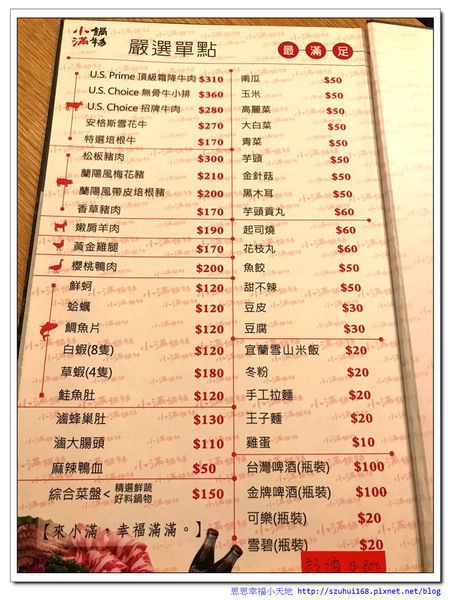 小滿鍋物
嚴選單點
最滿足
U.S. Prime 頂級霜降牛肉 $310
U.S. Choice 無骨牛小排 $360
U.S. Choice 招牌牛肉 $280
安格斯雪花牛 $270
特選培根牛 $170
松板豬肉 $300
蘭陽風梅花豬 $210
蘭陽風帶皮培根豬 $200
香草豬肉 $170
嫩肩羊肉 $190
黃金雞腿 $170
櫻桃鴨肉 $200
鮮蚵 $120
蛤蠣 $120
鯛魚片 $120
白蝦(8隻) $120
草蝦(4隻) $180
鮭魚肚 $120
滷蜂巢肚 $130
滷大腸頭 $110
麻辣鴨血 $50
綜合菜盤< 精選鮮蔬 $150
好料鍋物
【來小滿，幸福滿滿。】
南瓜 $50
玉米 $50
高麗菜 $50
大白菜 $50
青菜 $50
芋頭 $50
金針菇 $50
黑木耳 $50
芋頭貢丸 $60
起司燒 $60
花枝丸 $60
魚餃 $50
甜不辣 $50
豆皮 $30
豆腐 $30
宜蘭雪山米飯 $20
冬粉 $20
手工拉麵 $20
王子麵 $20
雞蛋 $10
台灣啤酒(瓶裝) $100
金牌啤酒(瓶裝) $100
可樂(瓶裝) $20
雪碧(瓶裝) $20
思思幸福小天地 http://szuhui168.pixnet.net/blog